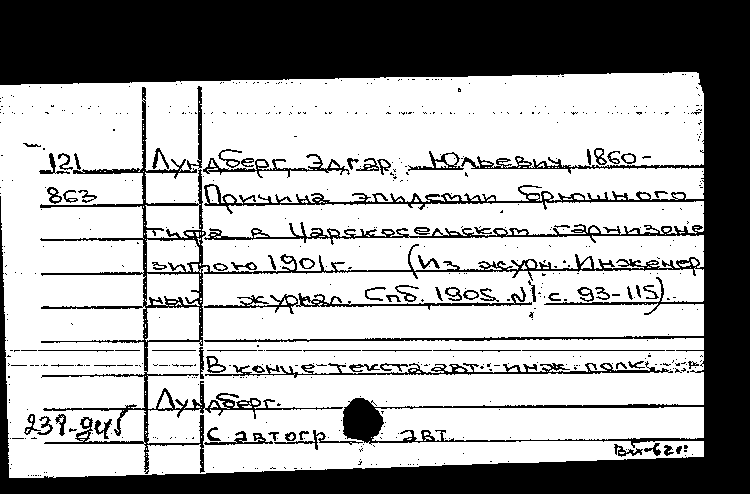 121 Лундберг, Эдгар Юльевич, 1860-
863 Причина эпидемии брюшного
тифа в Царскосельском гарнизоне
зимою 1901г. (Из журн.: Инженер
ный журнал. Спб, 1905 №1 с. 93-115).
В конце текста авт.: инж. полк.
Лундберг.
239-94г5
С автогр авт.